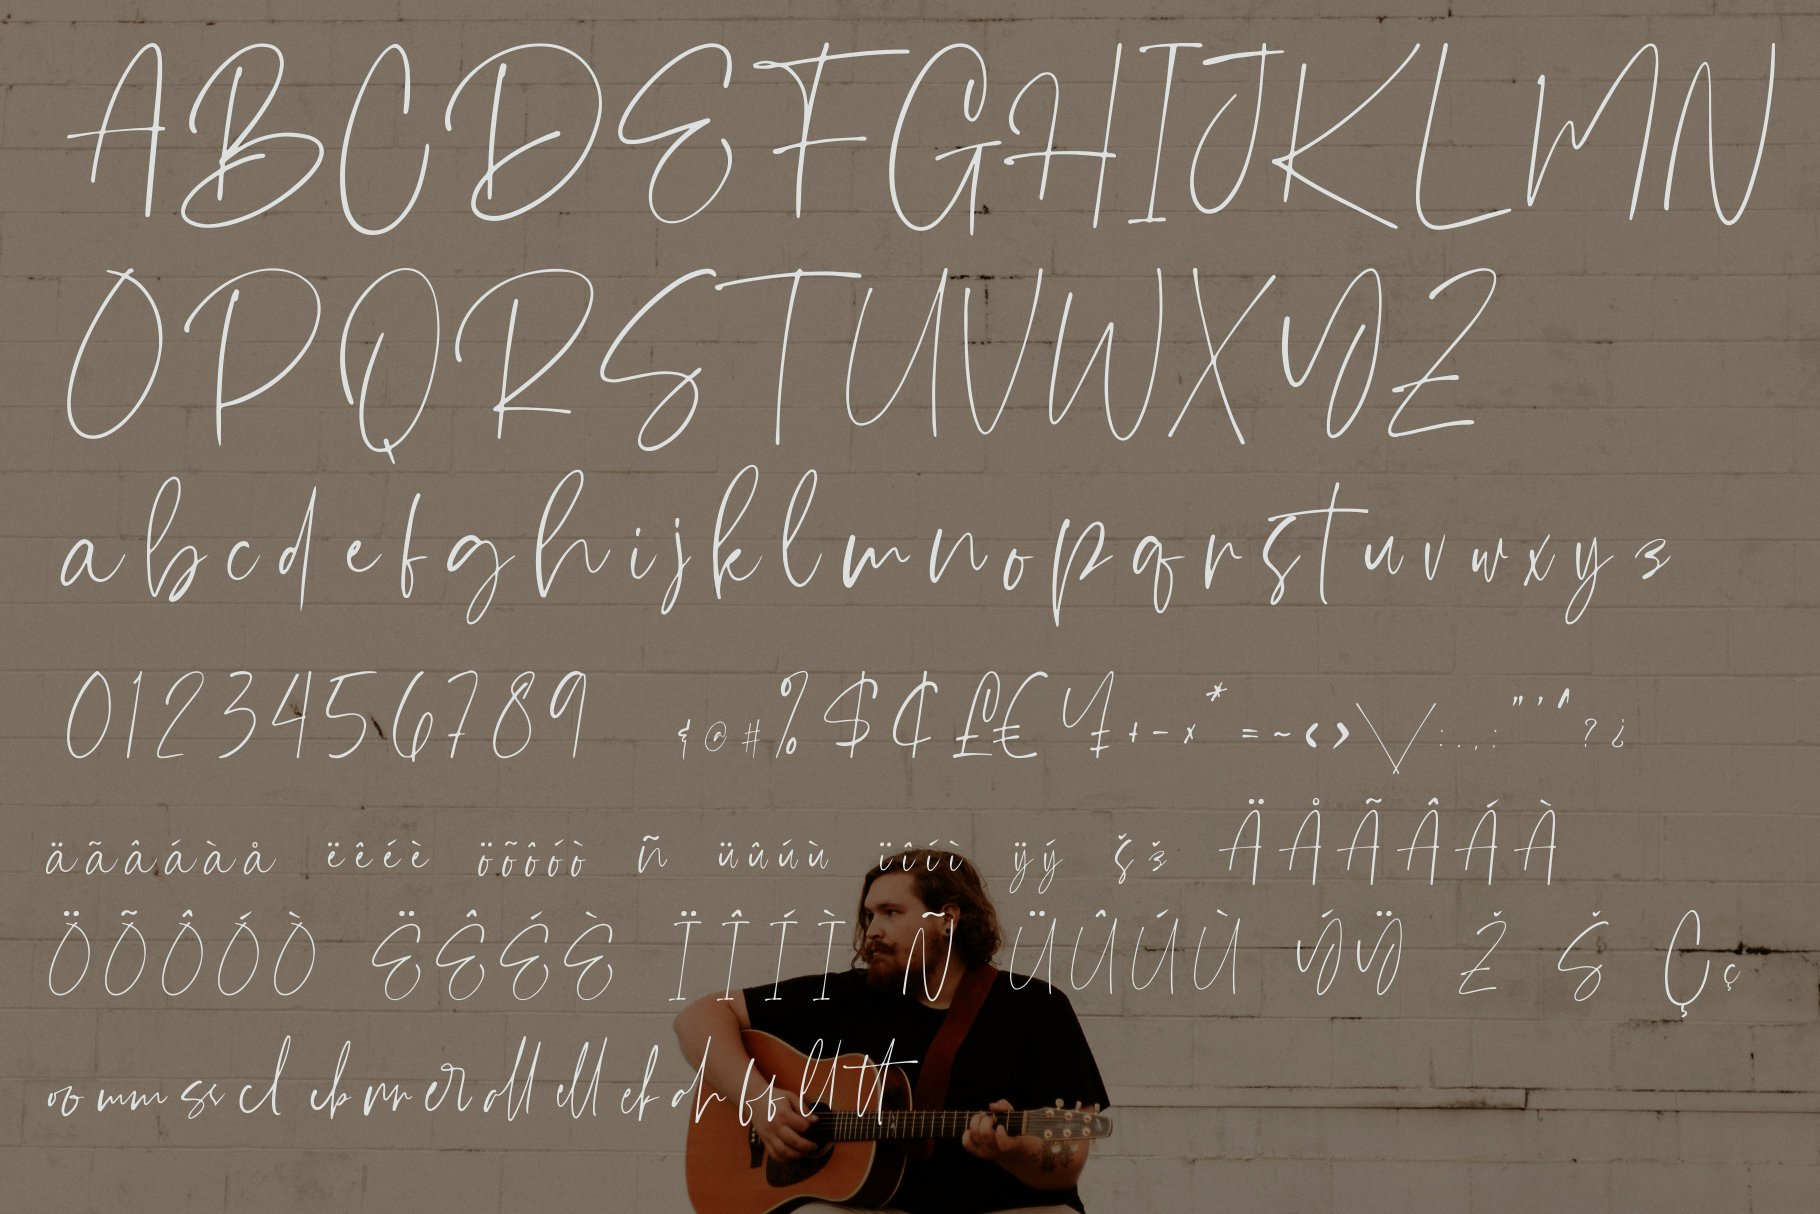 A B C D E F G H I J K L M N
O P Q R S T U V W X Y Z
a b c d e f g h i j k l m n o p q r s t u v w x y z
0 1 2 3 4 5 6 7 8 9 & @ # % $ ¢ £ € ¥ + - x * = ~ ( ) \ / : . , . ; " ' ^ ? ¿
ä ã â á à å ë ê é è ö õ ô ó ò ñ ü û ú ù ï î í ì ÿ ý š ž Ä Å Ã Â Á À
Ö Õ Ô Ó Ò Ë Ê É È Ï Î Í Ì Ñ Ü Û Ú Ù Ý Ÿ Ž Š Ç ç
oo mm ss cl ck rr er oll ell ek oh ff ll tt